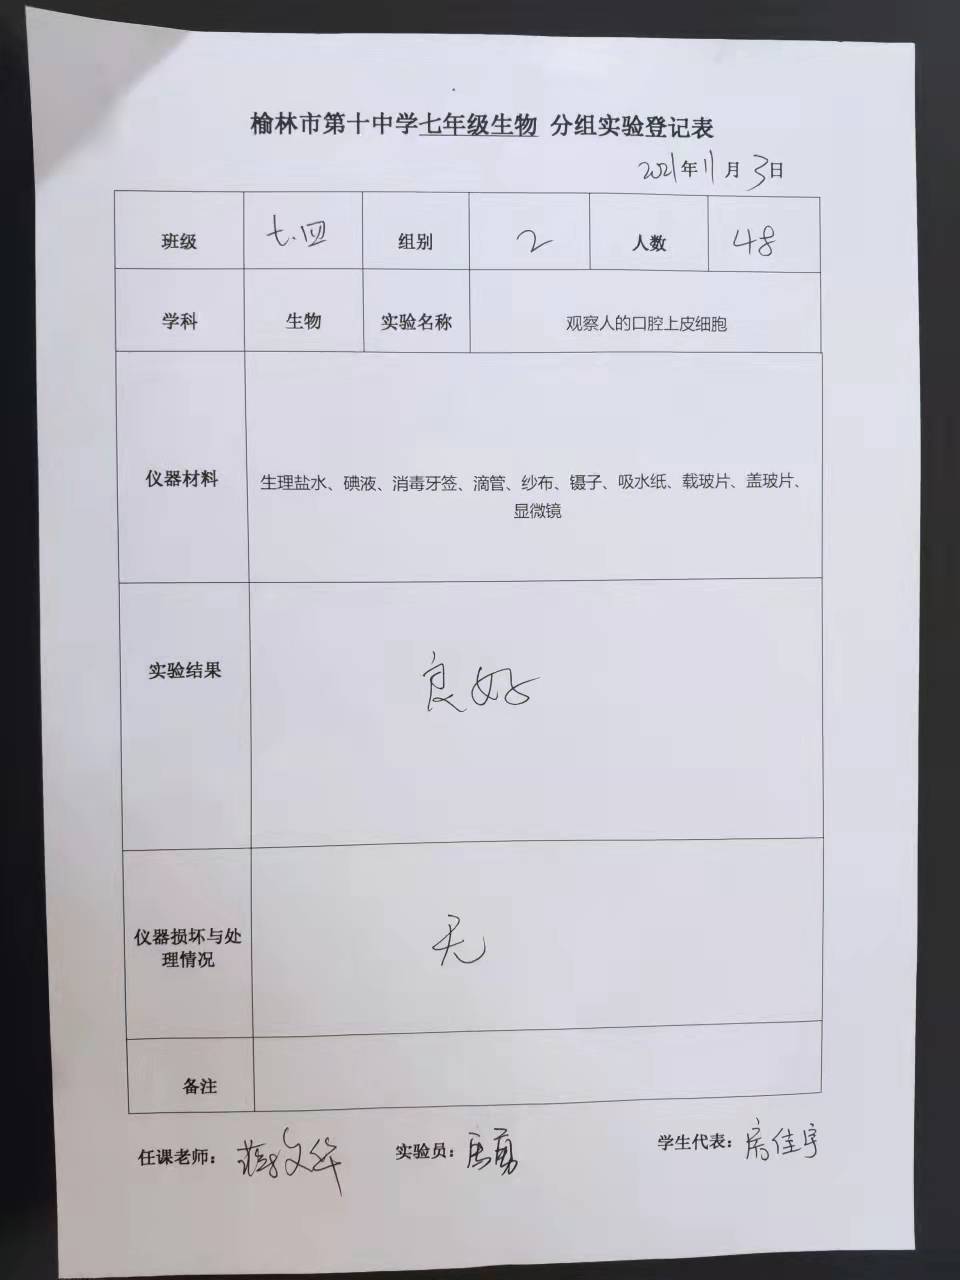 榆林市第十中学七年级生物 分组实验登记表
2021年11月3日
班级 七.四 组别 2 人数 48
学科 生物 实验名称 观察人的口腔上皮细胞
仪器材料
生理盐水、碘液、消毒牙签、滴管、纱布、镊子、吸水纸、载玻片、盖玻片、
显微镜
实验结果 良好
仪器损坏与处
理情况
无
备注
任课老师： 实验员： 学生代表：房佳宇